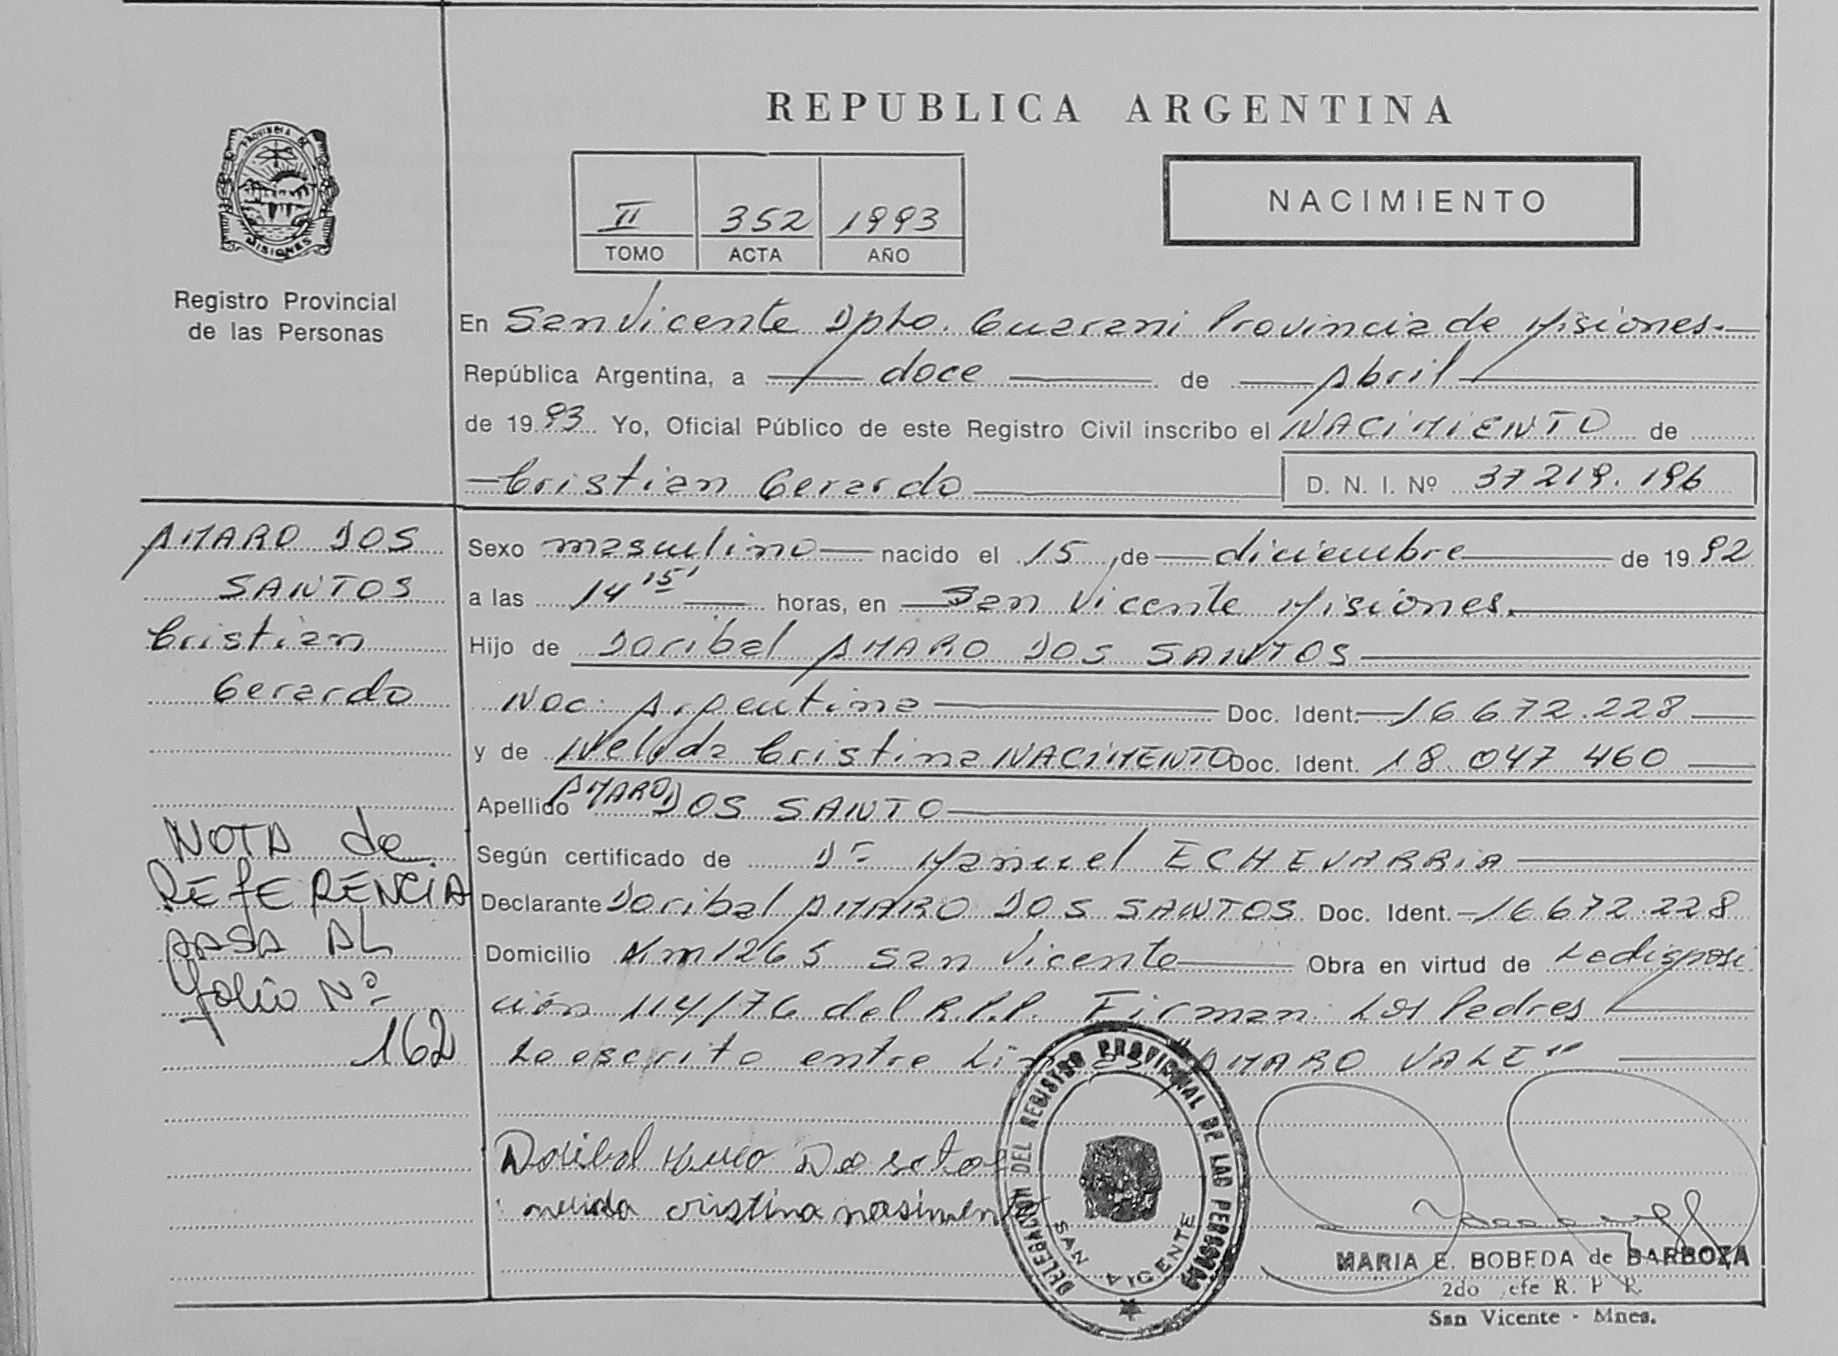 REPUBLICA ARGENTINA
PROVINCIA DE
MISIONES
Registro Provincial
de las Personas
II 352 1993
TOMO ACTA AÑO
NACIMIENTO
En San Vicente Dpto. Guarani Provincia de Misiones.
República Argentina, a doce de Abril
de 1993 Yo, Oficial Público de este Registro Civil inscribo el NACIMIENTO de
Cristian Gerardo D. N. I. Nº 37219.196
AMARO DOS
SANTOS
Cristian
Gerardo
NOTA de
REFERENCIA
PASA AL
folio Nº
162
Sexo masculino nacido el 15 de diciembre de 1992
a las 14 15' horas, en San Vicente Misiones.
Hijo de Doribal AMARO DOS SANTOS
Nac. Argentina Doc. Ident. 16 672.228
y de Nelida Cristina NACIMENTO Doc. Ident. 18.047 460
Apellido AMARO DOS SANTO
Según certificado de Dr Manuel ECHEVARRIA
Declarante Doribal AMARO DOS SANTOS Doc. Ident. 16 672.228
Domicilio Km 1265 San Vicente Obra en virtud de La disposi
ción 114/76 del R.P.P. Firman: Los Padres
Lo escrito entre Lineas "AMARO VALE"
Doribal
nelida cristina nasiment
DELEGACION DEL REGISTRO PROVINCIAL DE LAS PERSONAS
SAN VICENTE
MARIA E. BOBEDA de BARBOZA
2do Jefe R. P. P.
San Vicente - Mnes.